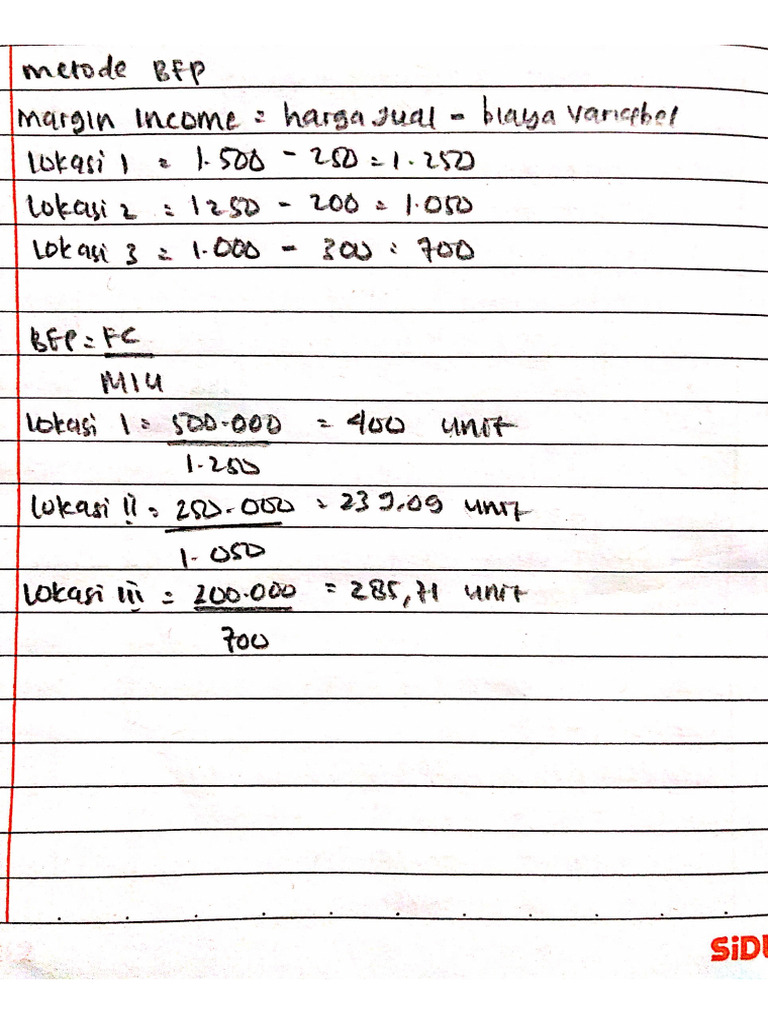 metode BEP
margin Income = harga jual - biaya variabel
Lokasi 1 = 1.500 - 250 = 1.250
Lokasi 2 = 1250 - 200 = 1.050
Lokasi 3 = 1.000 - 300 = 700
BEP = FC
MIU
Lokasi I = 500.000 = 400 unit
1.250
Lokasi II = 250.000 = 239.09 unit
1.050
Lokasi III = 200.000 = 285,71 unit
700
SiDU